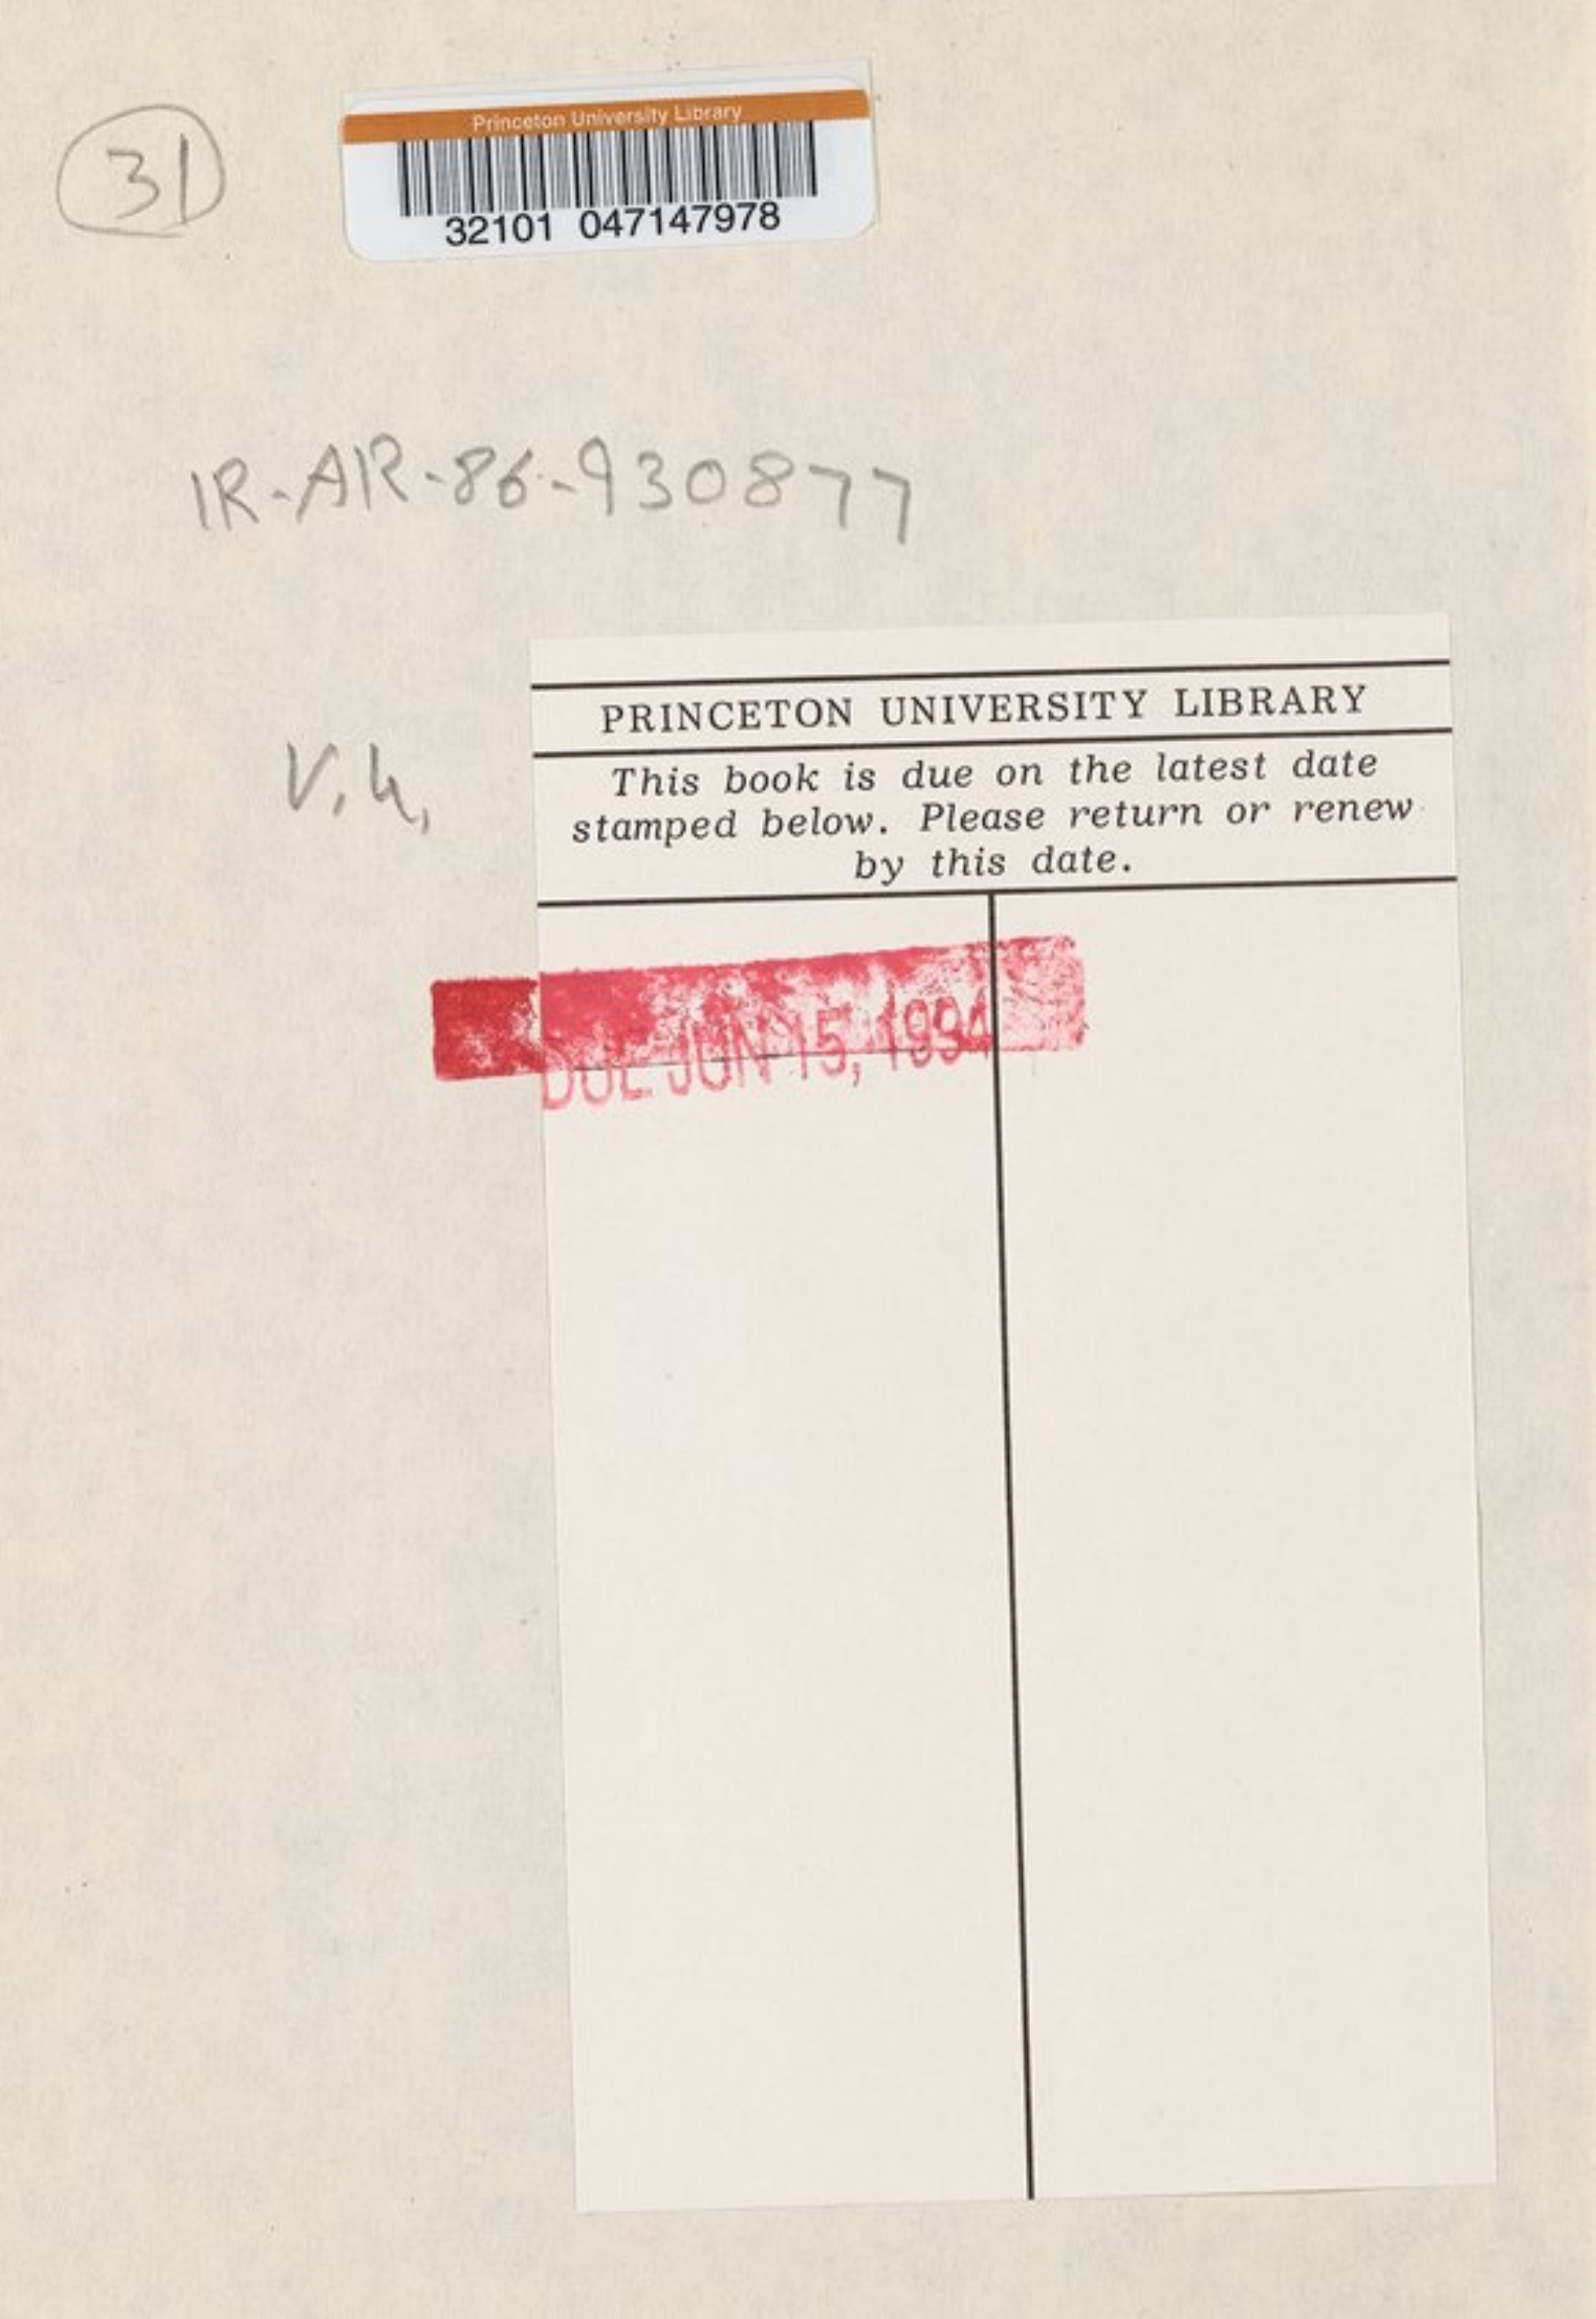 31
Princeton University Library
32101 047147978
IR-AR-86-930877
V.4,
PRINCETON UNIVERSITY LIBRARY
This book is due on the latest date
stamped below. Please return or renew
by this date.
DUE JUN 15, 1994